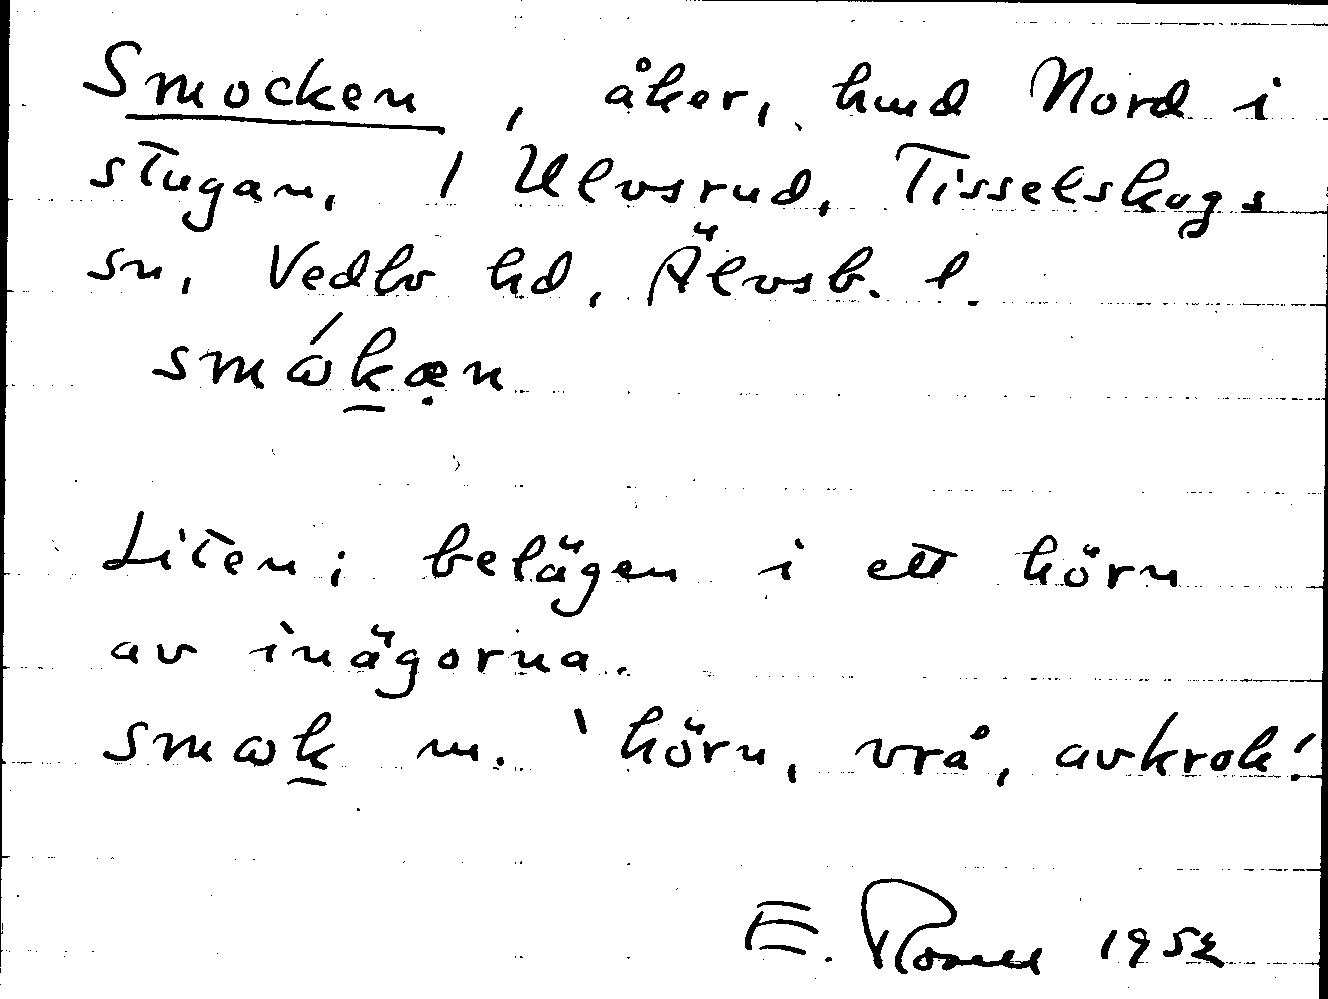 Smocken, åker, hmd Nord i
stugan, 1 Ulvsrud, Tisselskogs
sn, Vedbo hd, Älvsb. l.
smɷ́k̲æ̣n
Liten; belägen i ett hörn
av inägorna.
smɷk̲ m. 'hörn, vrå, avkrok'.
E. Rosell 1952